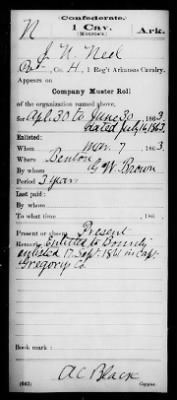 Confederate.
N 1 Cav. Ark.
(MONROE'S.)
J. N. Neel
Pvt, Co. H, 1 Reg't Arkansas Cavalry.
Appears on
Company Muster Roll
of the organization named above,
for Apl. 30 to June 30, 1863.
dated July 16, 1863.
Enlisted:
When Mar. 7, 1863.
Where Benton
By whom G W. Brown
Period 3 Years
Last paid:
By whom
To what time , 186 .
Present or absent Present
Remarks: Entitled to Bounty
enlisted 17 Sept 1861 in Capt
Gregory's Co.
Book mark:
A C Black
(642) Copyist.